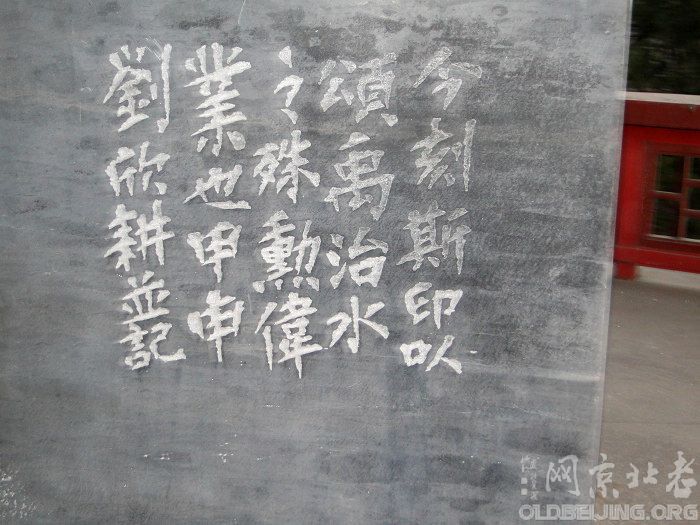 今刻斯印以
頌禹治水
之殊勳偉
業也甲申
劉欣耕並記
老北京网
OLDBEIJING.ORG